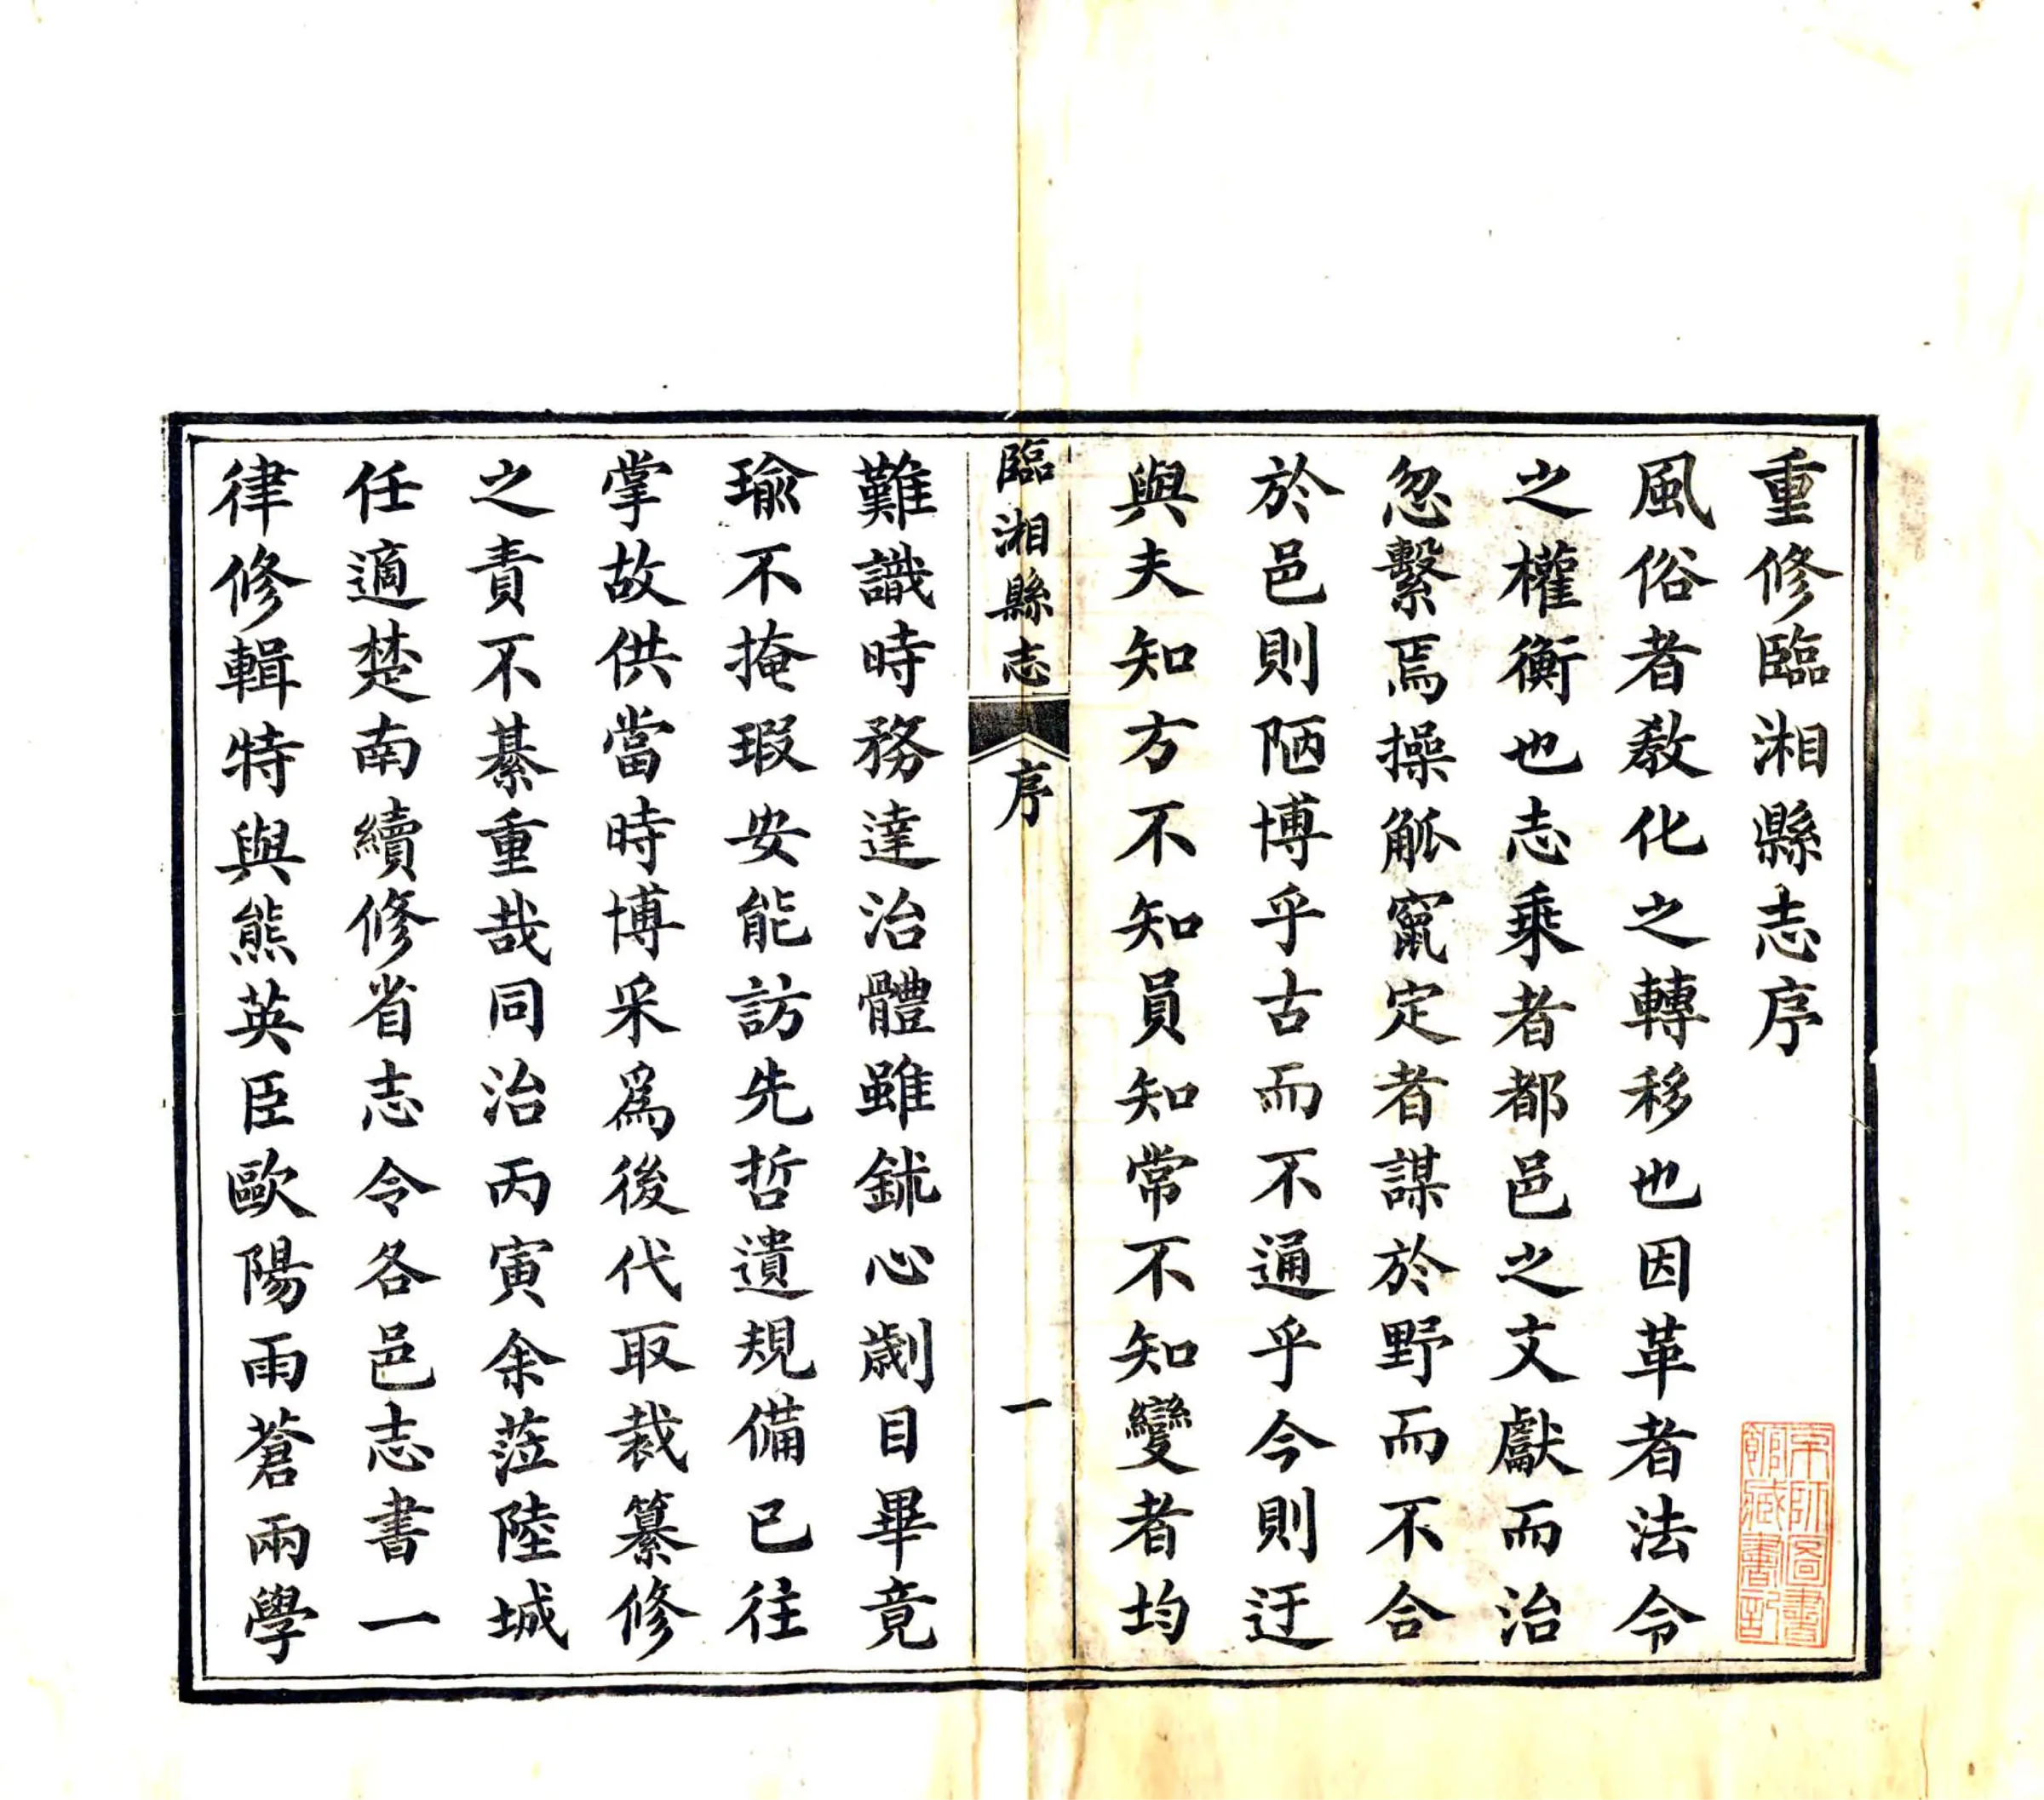 重修臨湘縣志序
風俗者教化之轉移也因革者法令
之權衡也志乘者都邑之文獻而治
忽繫焉操觚竄定者謀於野而不合
於邑則陋博乎古而不通乎今則迂
與夫知方不知員知常不知變者均
臨湘縣志
序
一
難識時務達治體雖鉥心劌目畢竟
瑜不掩瑕安能訪先哲遺規備已往
掌故供當時博采爲後代取裁纂修
之責不綦重哉同治丙寅余蒞陸城
任適楚南續修省志令各邑志書一
律修輯特與熊英臣歐陽雨蒼兩學